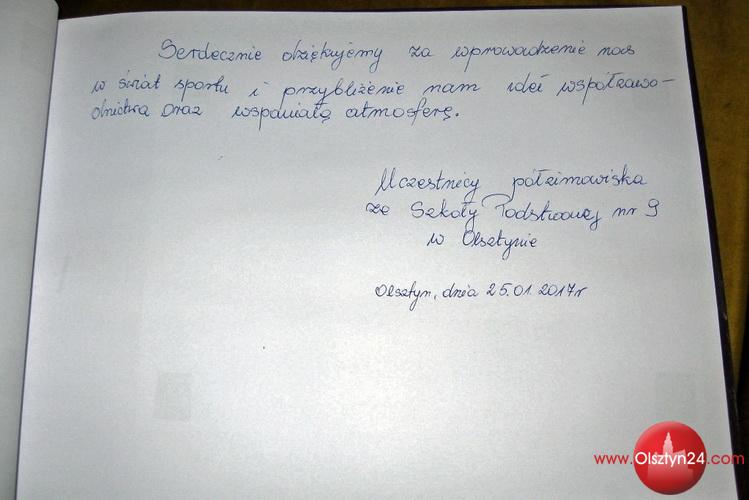 Serdecznie dziękujemy za wprowadzenie nas
w świat sportu i przybliżenie nam idei współzawo-
dnictwa oraz wspaniałą atmosferę.
Uczestnicy półzimowiska
ze Szkoły Podstwowej nr 9
w Olsztynie
Olsztyn, dnia 25.01.2017r
www.Olsztyn24.com